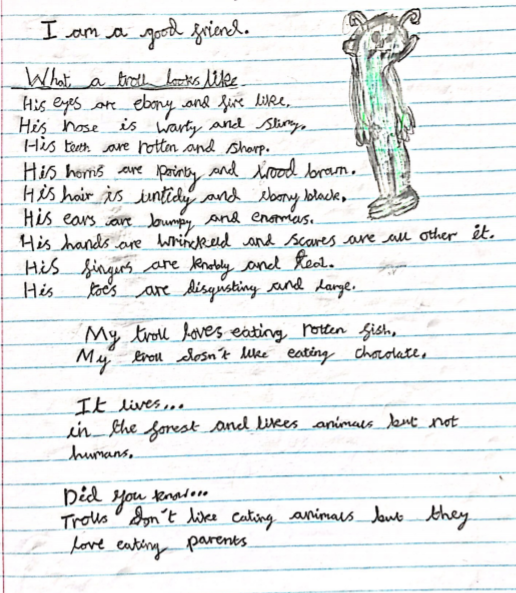 I am a good friend.
What a troll looks like
His eyes are ebony and fire like.
His nose is warty and slimy.
His teeth are rotten and sharp.
His horns are pointy and wood brown.
His hair is untidy and ebony black.
His ears are bumpy and enormas.
His hands are wrinckeld and scares are all other it.
His fingers are knobly and
His toes are disgusting and large.
My troll loves eating rotten fish.
My troll dosn't like eating chocolate.
It lives...
in the forest and likes animals but not
humans.
Did you know...
Trolls don't like eating animals but they
love eating parents